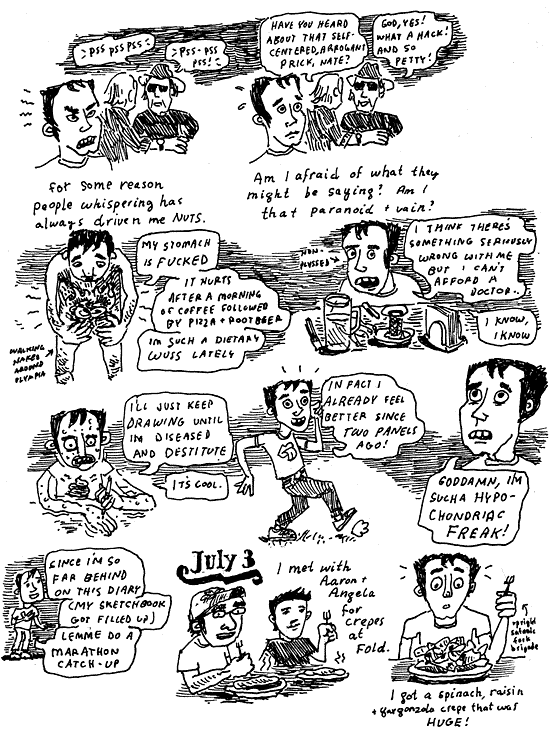 PSS PSS PSS
PSS-PSS
PSS!
HAVE YOU HEARD
ABOUT THAT SELF-
CENTERED, ARROGANT
PRICK, NATE?
GOD, YES!
WHAT A HACK!
AND SO
PETTY!
for some reason
people whispering has
always driven me NUTS.
Am I afraid of what they
might be saying? Am I
that paranoid + vain?
MY STOMACH
IS FUCKED
IT HURTS
AFTER A MORNING
OF COFFEE FOLLOWED
BY PIZZA + ROOTBEER
I'M SUCH A DIETARY
WUSS LATELY
WALKING
NAKED
AROUND
OLYMPIA
NON-
PLUSSED
I THINK THERE'S
SOMETHING SERIOUSLY
WRONG WITH ME
BUT I CAN'T
AFFORD A
DOCTOR..
I KNOW,
I KNOW
I'LL JUST KEEP
DRAWING UNTIL
I'M DISEASED
AND DESTITUTE
IT'S COOL.
IN FACT I
ALREADY FEEL
BETTER SINCE
TWO PANELS
AGO!
GODDAMN, I'M
SUCHA HYPO-
CHONDRIAC
FREAK!
SINCE I'M SO
FAR BEHIND
ON THIS DIARY
(MY SKETCHBOOK
GOT FILLED UP)
LEMME DO A
MARATHON
CATCH-UP
July 3
I met with
Aaron +
Angela
for
crepes
at
Fold.
upright
satanic
fork
brigade
I got a spinach, raisin
+ gorgonzola crepe that was
HUGE!